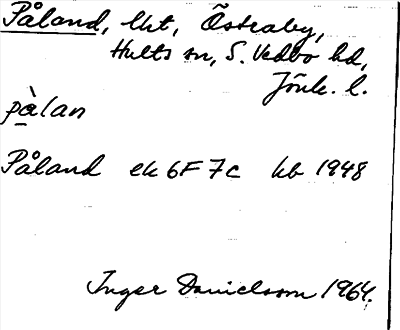 Påland, lht, Östraby,
Hults sn, S. Vedbo hd,
Jönk. l.
pàlan
Påland ek 6F7c kb 1948
Inger Danielsson 1964.